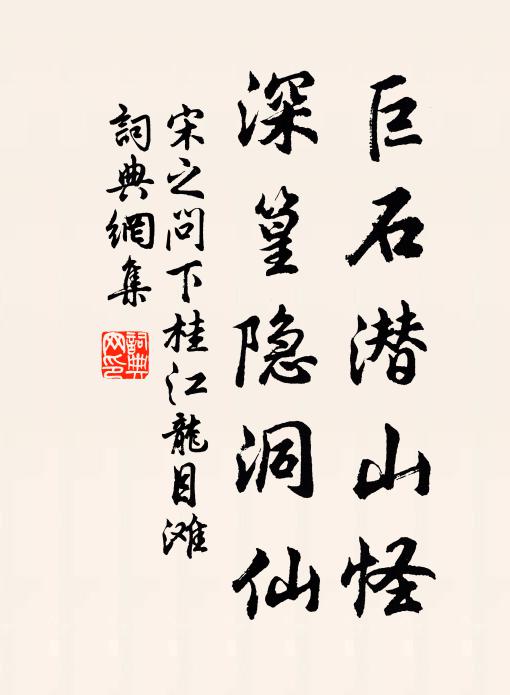 巨石潜山怪
深篁隐洞仙
宋之问下桂江龍目滩
詞典網集
詞典
网印